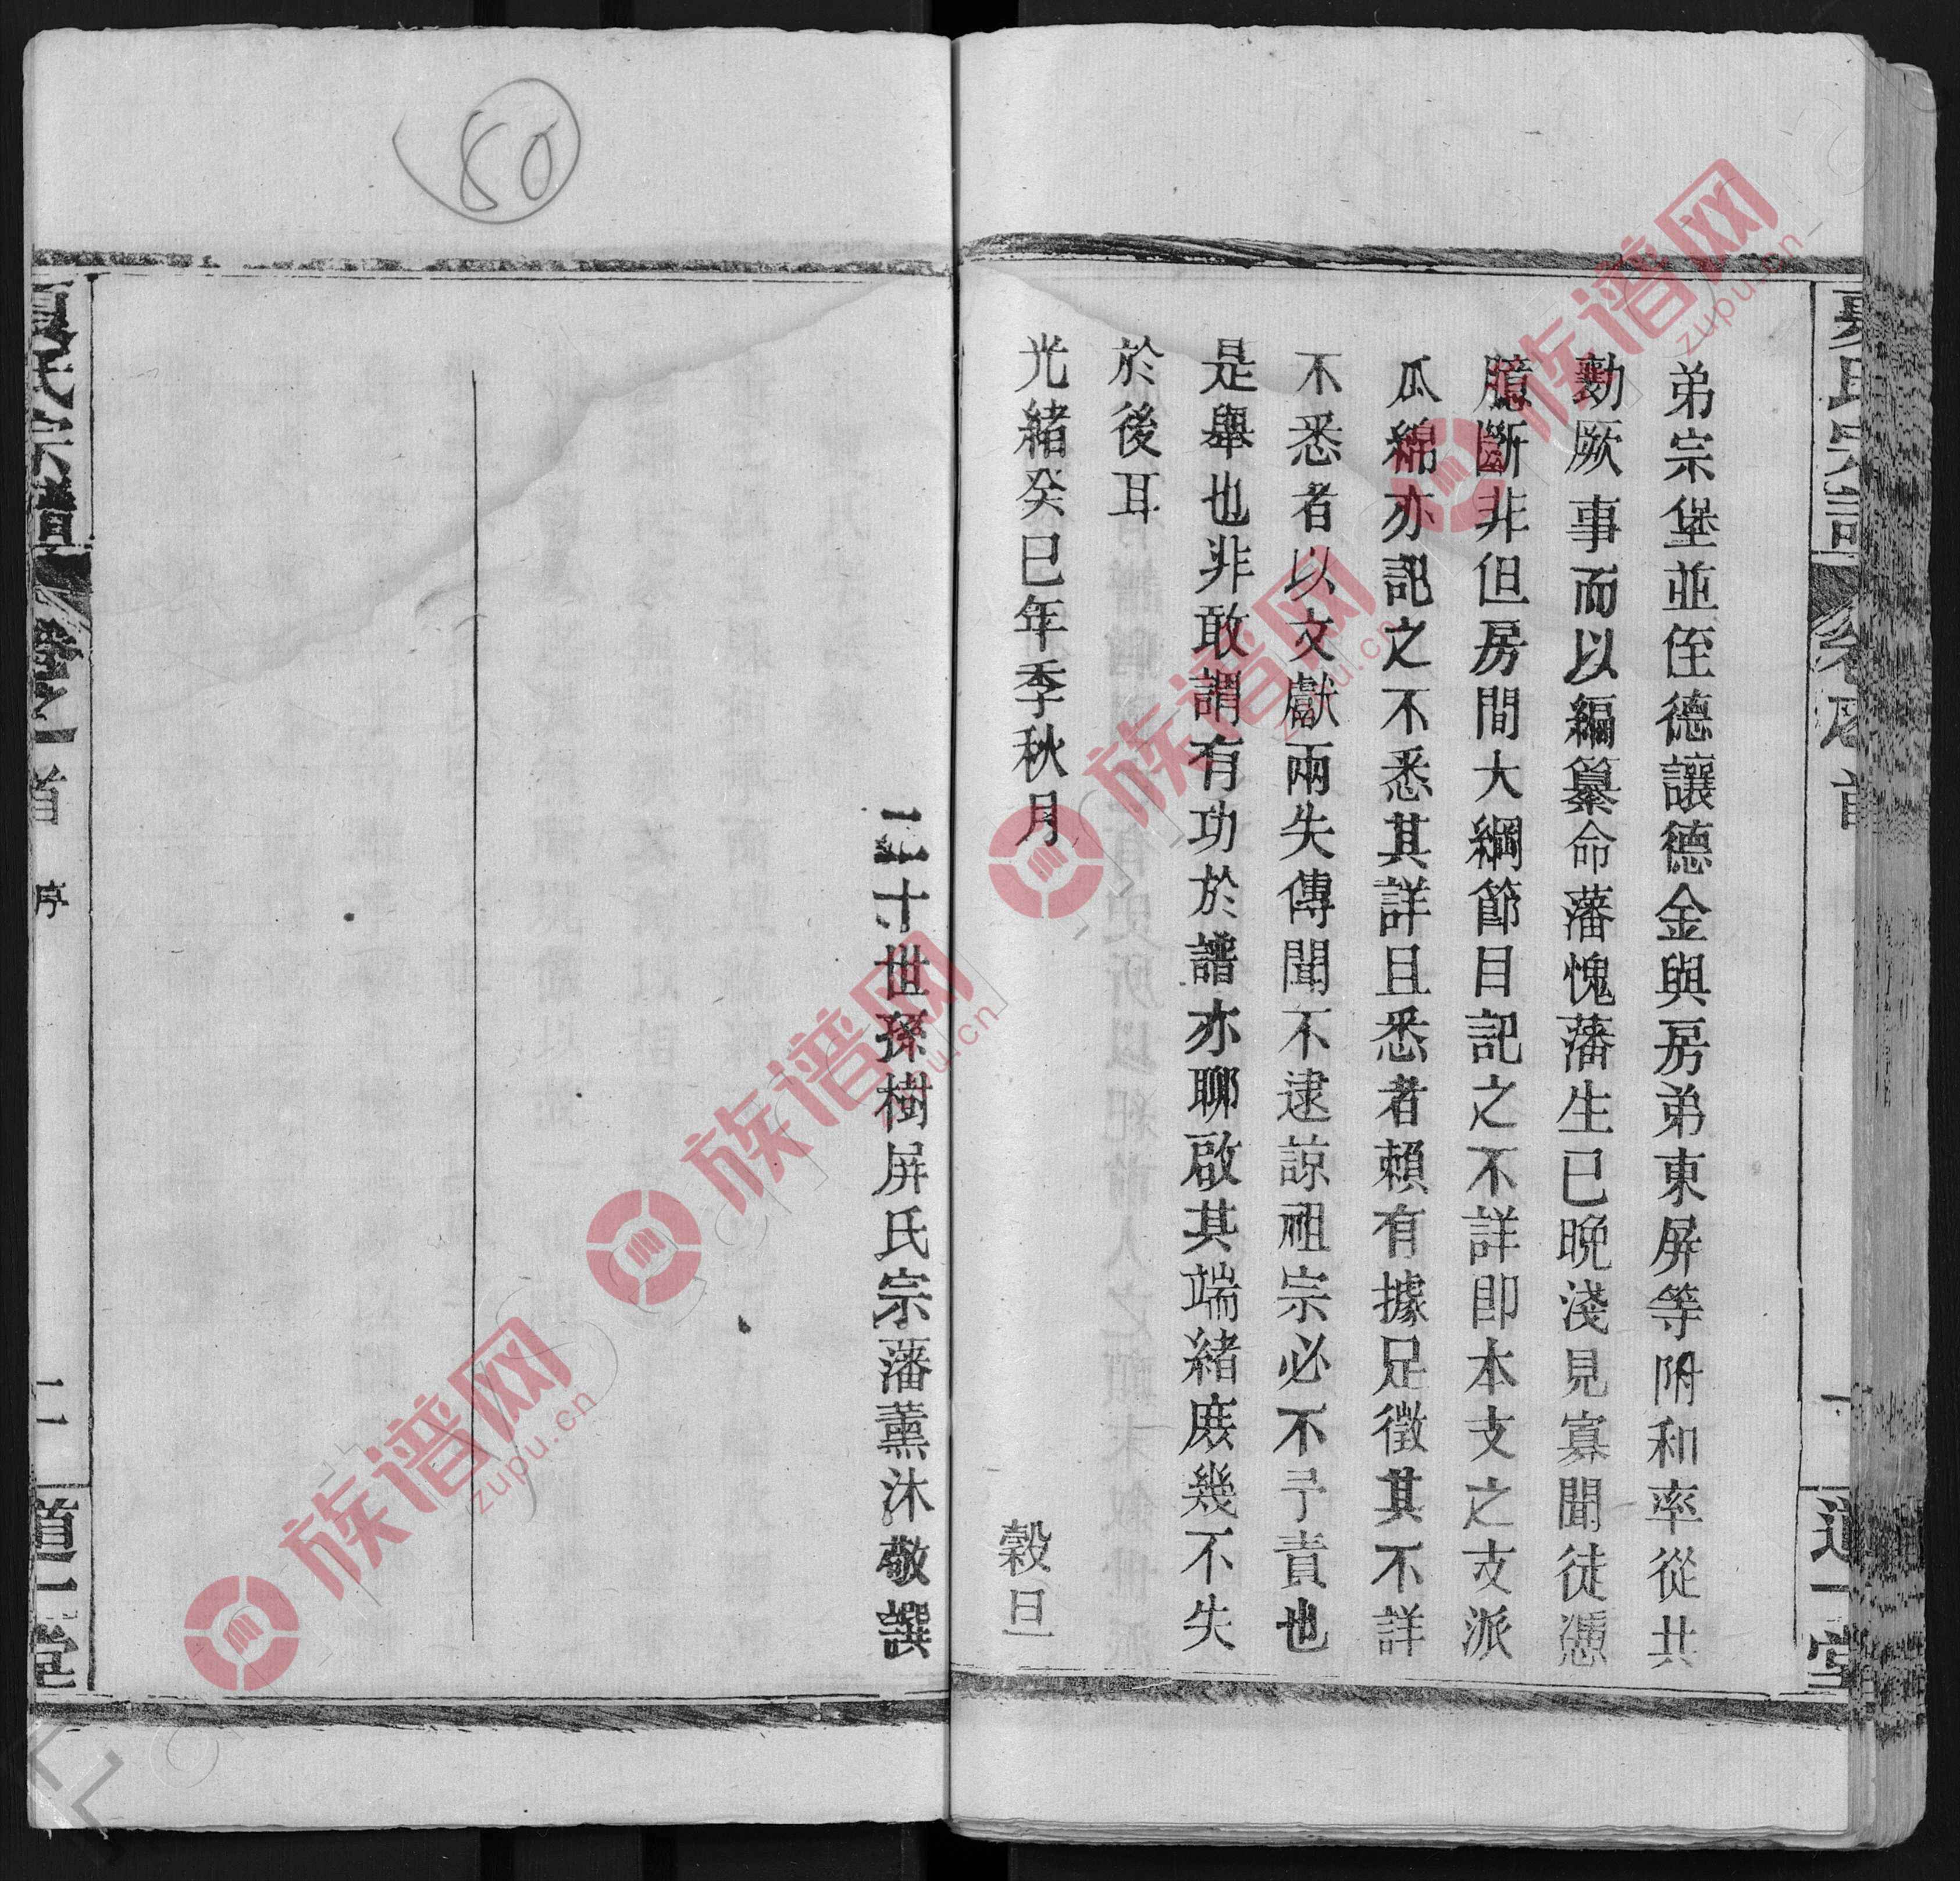 弟宗堡並侄德讓德金與房弟東屏等附和率從共
勷厥事而以編纂命藩愧藩生已晚淺見寡聞徒憑
臆斷非但房間大綱節目記之不詳即本支之支派
瓜綿亦記之不悉其詳且悉者賴有據足徵其不詳
不悉者以文獻兩失傳聞不逮諒祖宗必不予責也
是舉也非敢謂有功於譜亦聊啟其端緒庶幾不失
於後耳
光緒癸巳年季秋月
穀旦
二十世孫樹屏氏宗藩薰沐敬譔
氏宗譜
卷之
首
序
二
道一堂
80
族谱网
zupu.cn
族谱网
zupu.cn
族谱网
zupu.cn
族谱网
zupu.cn